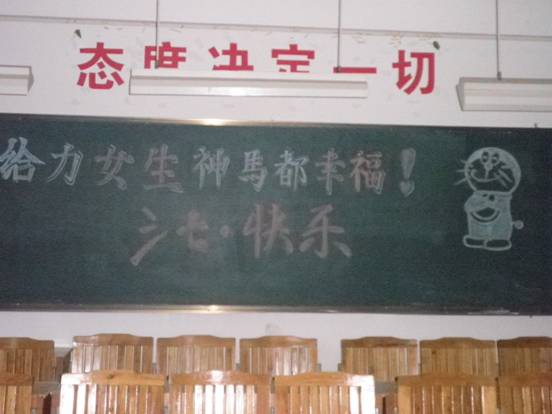 态度决定一切
给力女生神馬都幸福！
三七·快乐